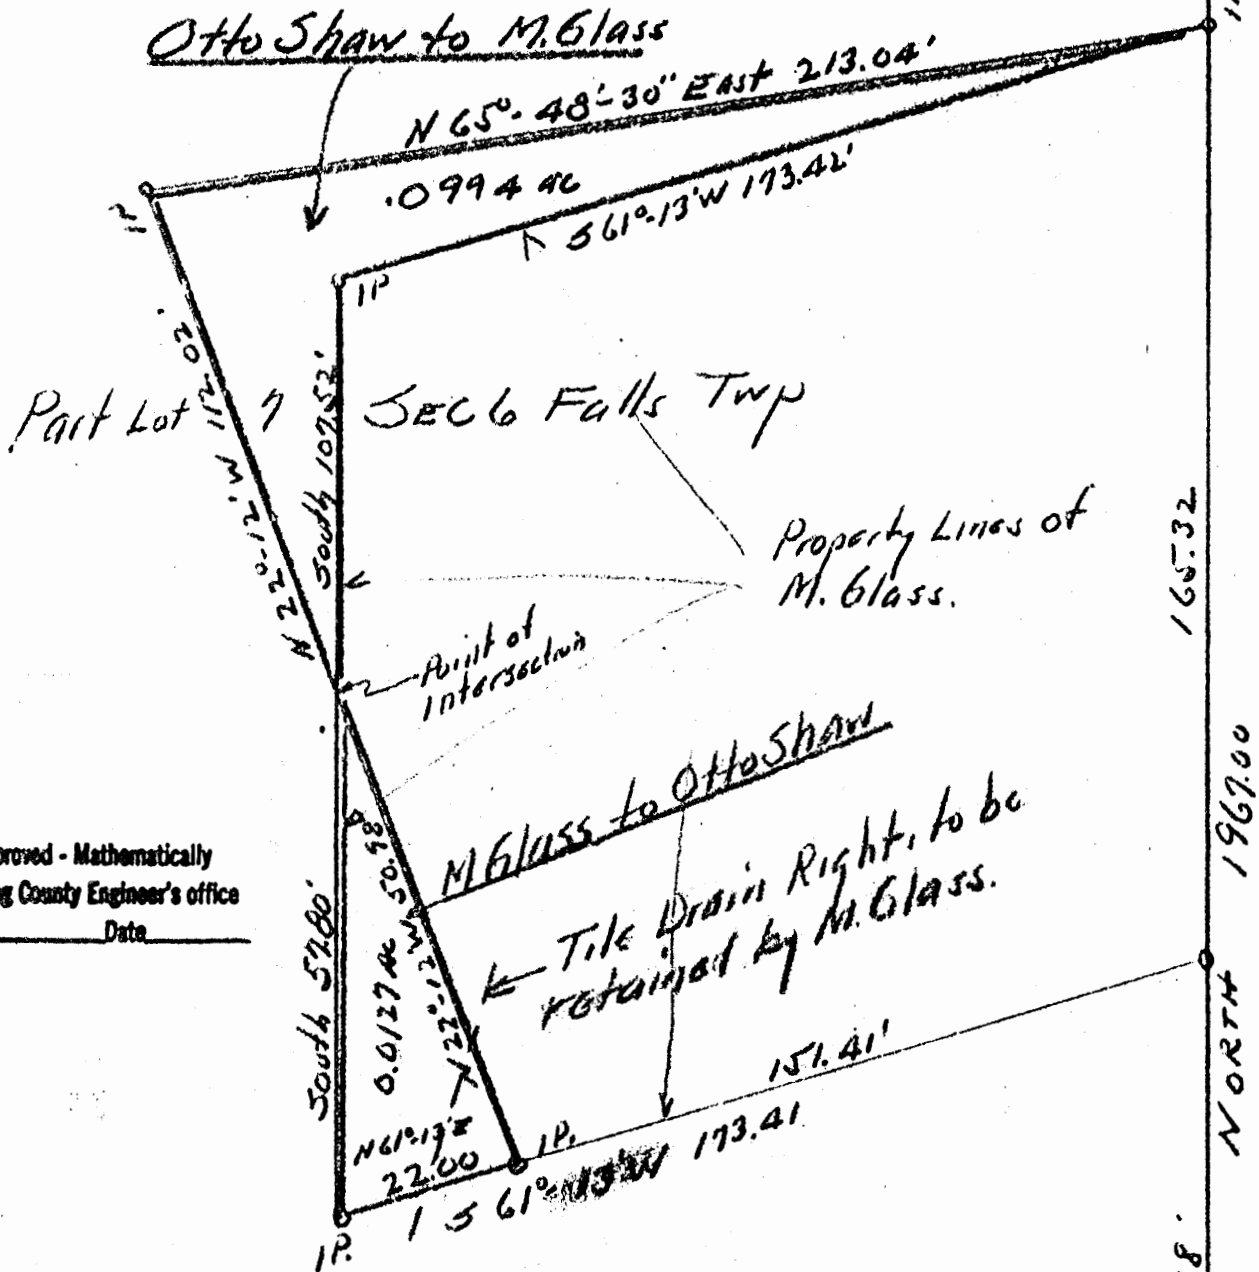 Otto Shaw to M. Glass
N 65°-48'-30" East 213.04'
.0994 ac
S 61°-13'W 173.42'
IP
IP
N 22°-12'W 112.02'
South 107.52'
Part Lot 7 SEC 6 Falls Twp
Property Lines of
M. Glass.
165.32
Point of
Intersection
M Glass to Otto Shaw
Tile Drain Right, to be
retained by M. Glass.
proved - Mathematically
g County Engineer's office
Date
South 57.80'
0.0127 ac
N 22°-12'W 50.98
1967.00
NORTH
151.41'
N 61°-13'E
22.00
IP.
S 61°-13'W 173.41
IP.
8.